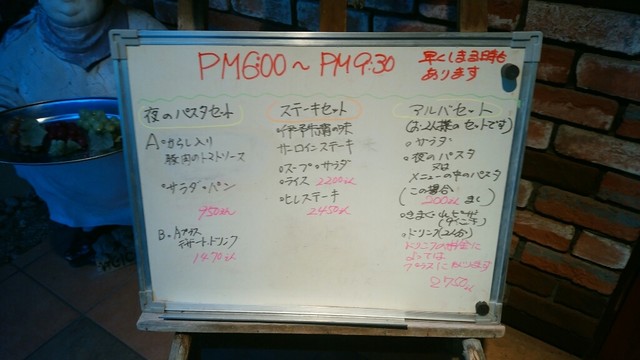 PM6:00～PM9:30
早くしまる日も
あります
夜のパスタセット
A
からし入り
豚肉のトマトソース
サラダ・パン
950えん
B・Aプラス
デザート・ドリンク
1470えん
ステーキセット
サーロインステーキ
スープ・サラダ
ライス 2200えん
ヒレステーキ
2450えん
アルバセット
(お2人様のセットです)
サラダ
夜のパスタ
又は
メニューの中のパスタ
(この場合
200えんまし)
ドリンク(2人分)
ドリンクの料金に
よっては
プラスになります
2750えん